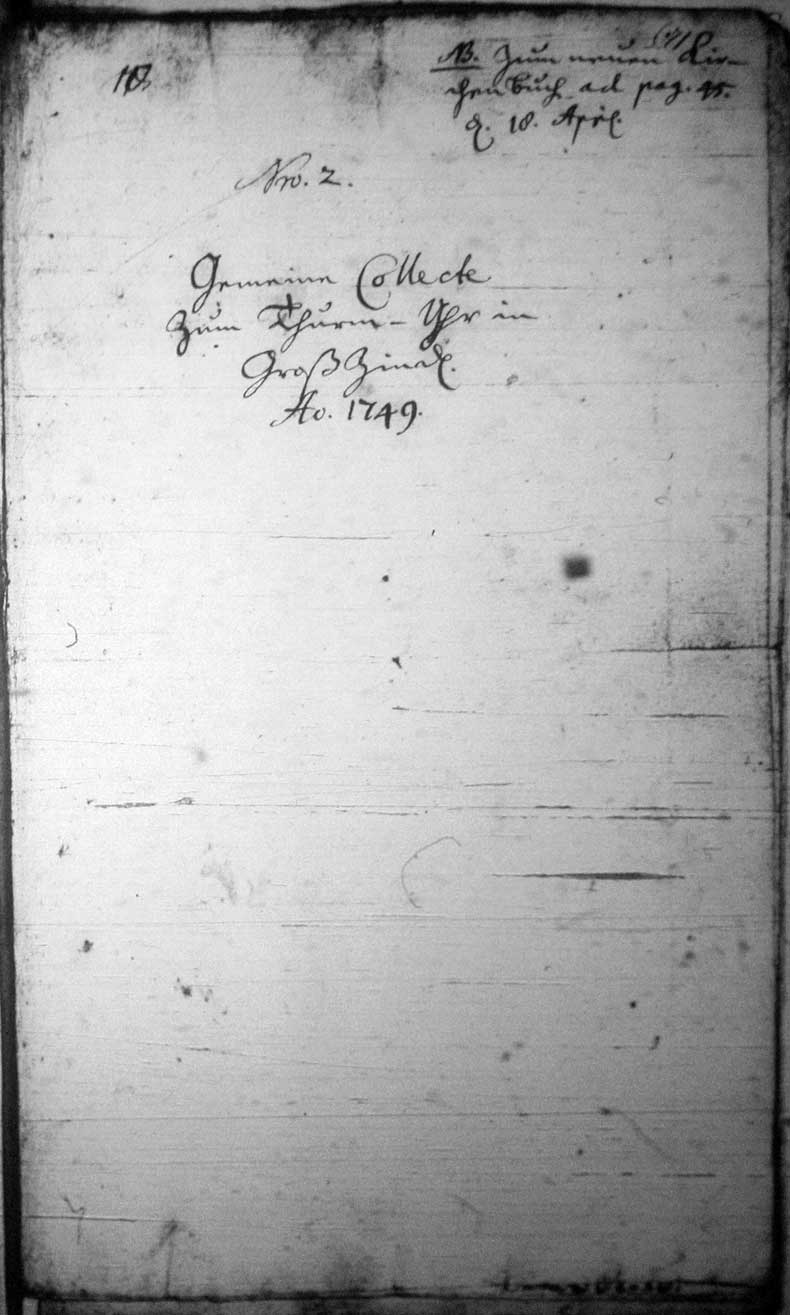 NB. Zum neuen Kir-
chen Buch ad pag. 45.
d. 18. April.
Nro. 2.
Gemeine Collecte
Zum Thurm-Uhr in
Groß Zind.
Ao. 1749.